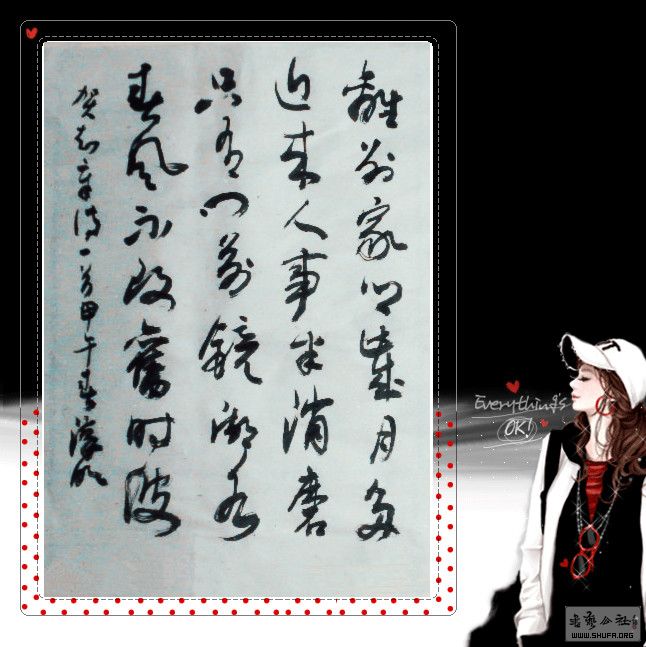 離别家乡歲月多
近来人事半消磨
只有门前鏡湖水
春风不改舊时波
贺知章诗一首甲午春
Everything's
OK!
书艺公社
WWW.SHUFA.ORG